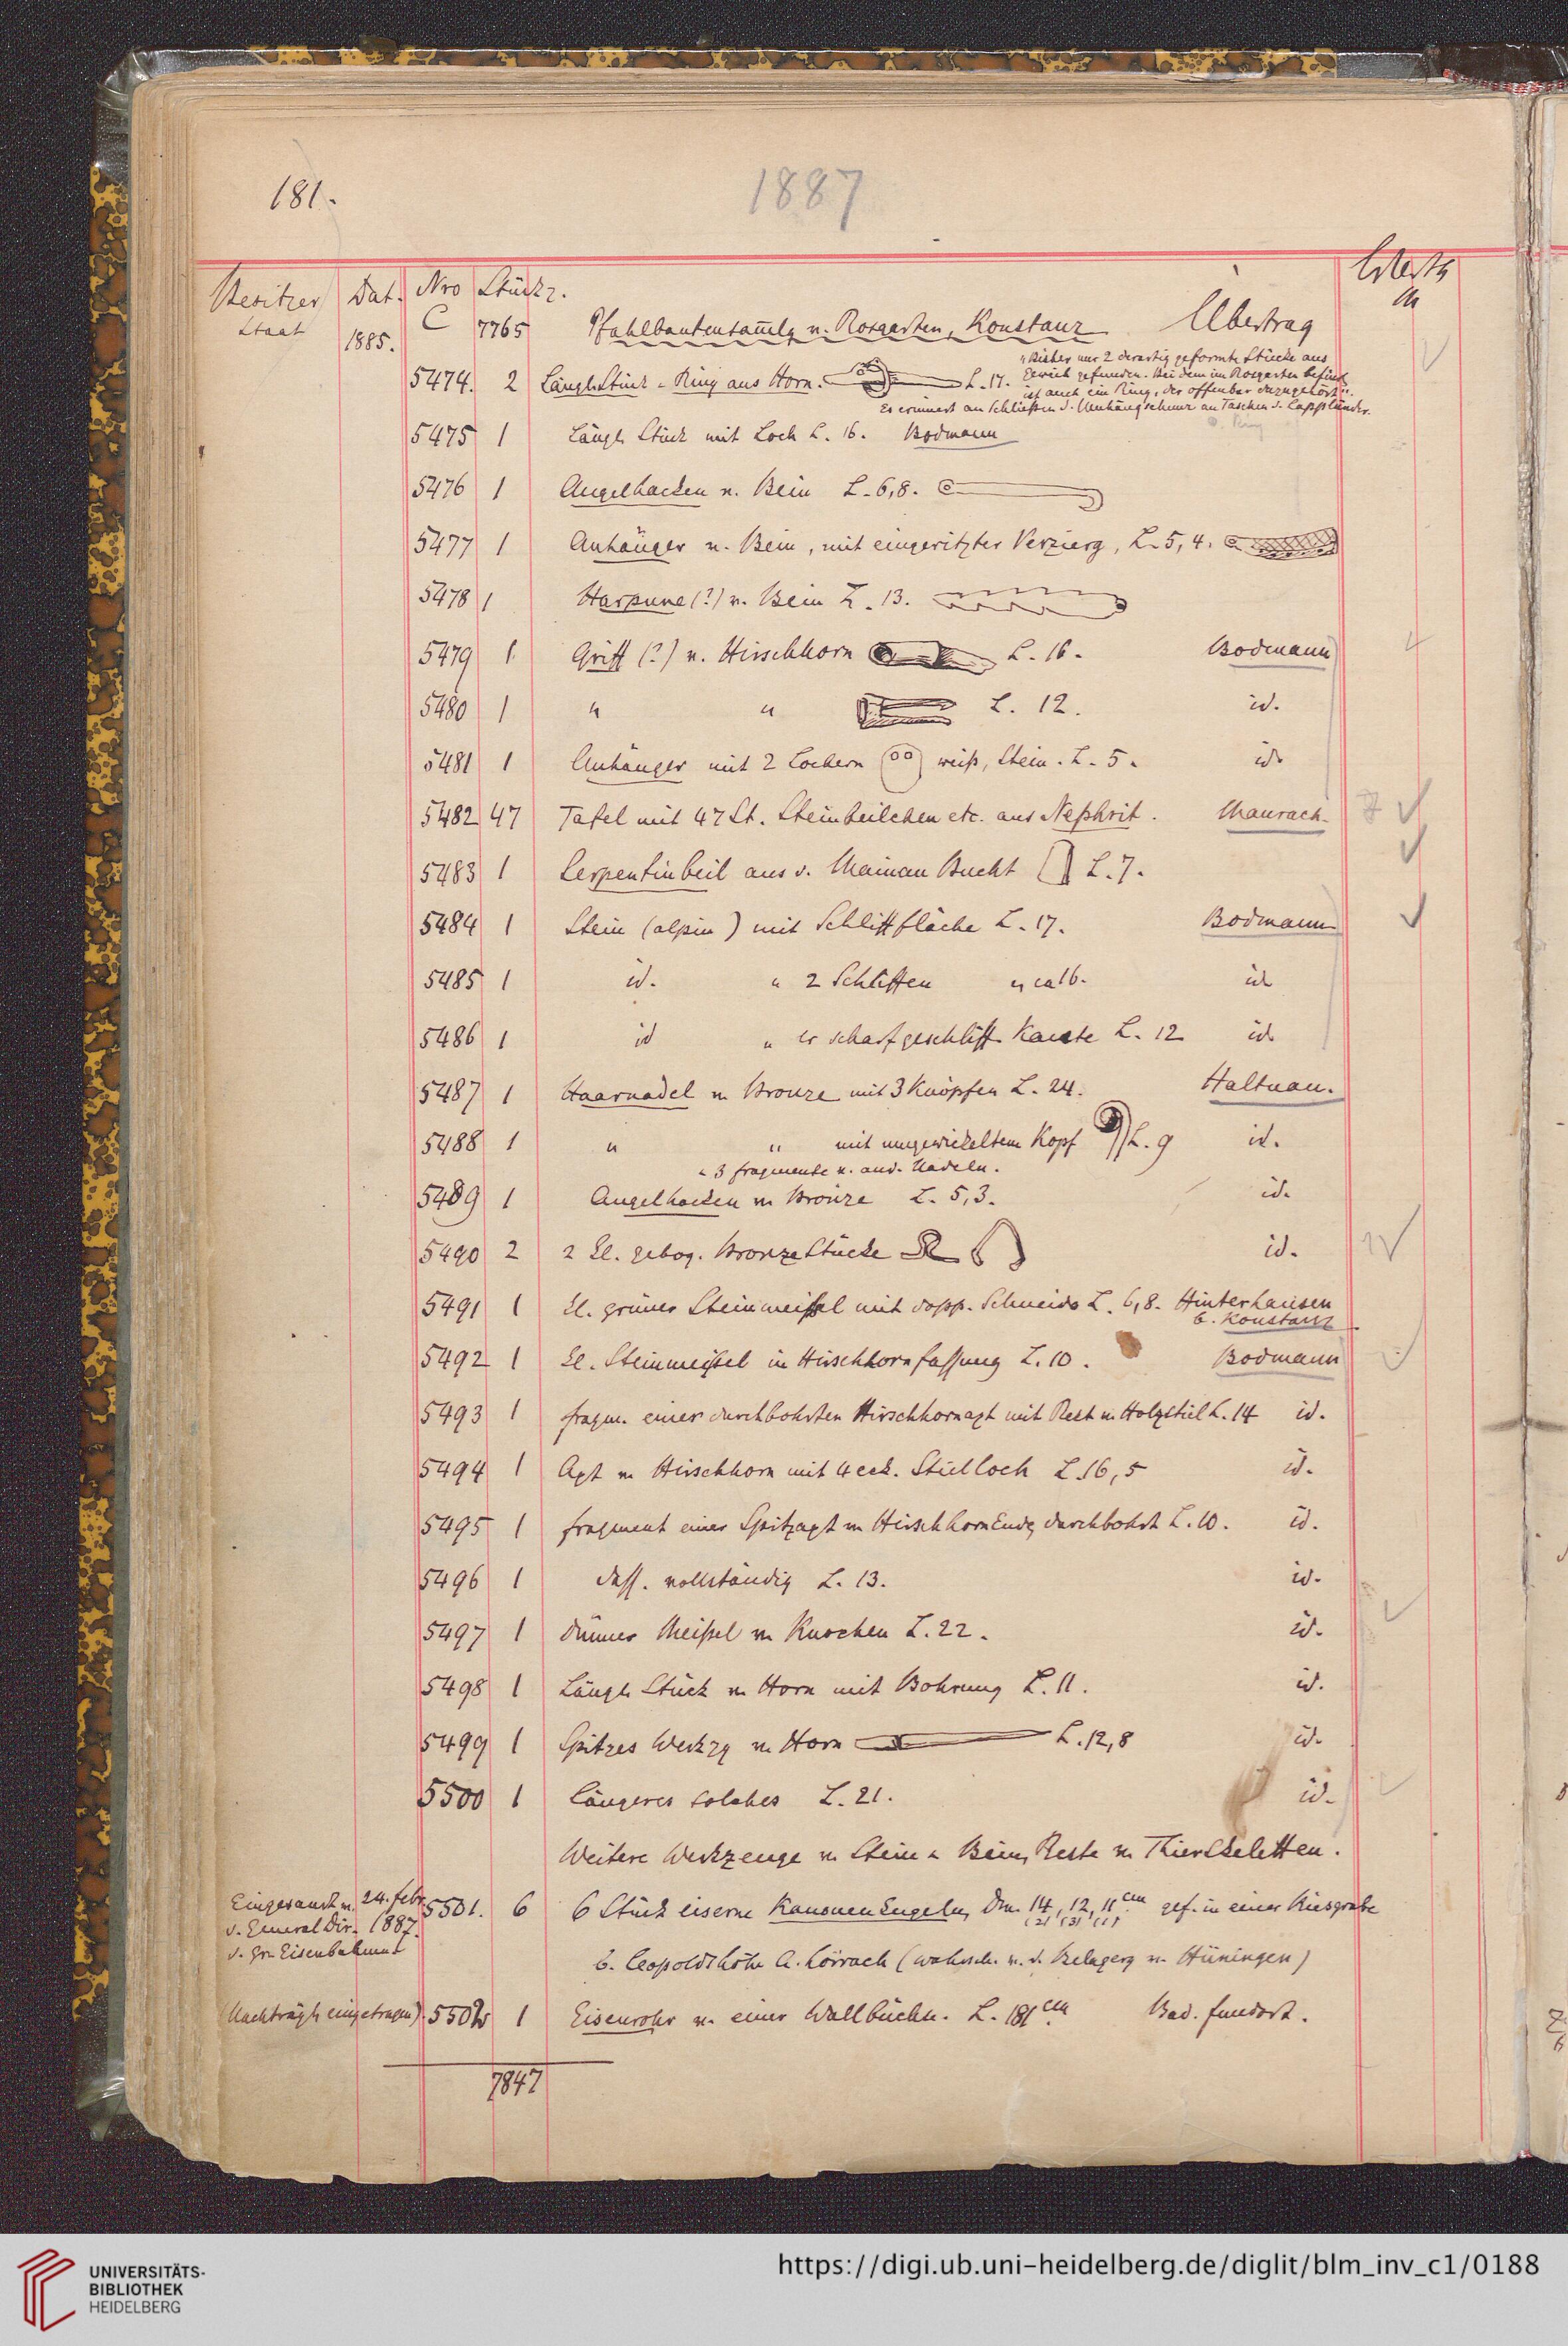 181.
1887
Besitzer Dat. Nro Stückz. Werth
Staat 1885. C 7765 Pfahlbautensamlg v. Rosgarten, Konstanz Übertrag M
"Bisher nur 2 derartig geformte Stücke aus
5474. 2 Längl. Stück u. Ring aus Horn. L. 17. Geweih gefunden. Bei dem im Rosgarten befindl.
ist auch ein Ring, der offenbar dazugehört".
Es erinnert an Schließen d. Umhängschnur an Taschen d. Lappländer.
5475 1 Längl. Stück mit Loch L. 16. Bodmann
5476 1 Angelhacken v. Bein L. 6,8.
5477 1 Anhänger v. Bein, mit eingeritzter Verzierg, L. 5,4.
5478 1 Harpune (?) v. Bein L. 13.
5479 1 Griff (?) v. Hirschhorn L. 16. Bodmann
5480 1 " " L. 12. id.
5481 1 Anhänger mit 2 Löchern weiß, Stein. L. 5. id.
5482 47 Tafel mit 47 St. Steinbeilchen etc. aus Nephrit. Maurach.
5483 1 Serpentinbeil aus d. Mainau Bucht L. 7.
5484 1 Stein (alpin) mit Schlifffläche L. 17. Bodmann
5485 1 id. " 2 Schliffen " ca 16. id.
5486 1 id " er scharf geschliff. Kante L. 12 id.
5487 1 Haarnadel v. Bronze mit 3 Knöpfen L. 24. Haltnau.
5488 1 " " mit umgewickeltem Kopf L. 9 id.
u. 3 fragmente v. and. Nadeln.
5489 1 Angelhacken v. Bronze L. 5,3. id.
5490 2 2 kl. gebog. Bronze Stücke id.
5491 1 kl. grüner Steinmeißel mit dopp. Schneide L. 6,8. Hinterhausen
b. Konstanz
5492 1 kl. Steinmeißel in Hirschhornfassung L. 10. Bodmann
5493 1 fragm. einer durchbohrten Hirschhornaxt mit Rest v. Holzstiel L. 14 id.
5494 1 Axt v. Hirschhorn mit 4 eck. Stielloch L. 16,5 id.
5495 1 fragment einer Spitzaxt v. HirschhornEnde, durchbohrt L. 10. id.
5496 1 dass. vollständig L. 13. id.
5497 1 dünner Meißel v. Knochen L. 22. id.
5498 1 Längl. Stück v. Horn mit Bohrung L. 11. id.
5499 1 Spitzes Werkzg v. Horn L. 12,8 id.
5500 1 Längeres solches L. 21. id.
Weitere Werkzeuge v. Stein u. Bein, Reste v. Thierskeletten.
Eingesandt v. 24. febr. 5501. 6 6 Stück eiserne Kanonenkugeln, Dm. 14, 12, 11 cm. gef. in einer Kiesgrube
(2) (3) (1)
d. General Dir. 1887.
d. gr. Eisenbahnen b. Leopoldshöhe A. Lörrach (wahrsch. v. d. Belagerg v. Hüningen)
(Nachträgl. eingetragen). 5502 1 Eisenrohr v. einer Wallbüchse. L. 181 cm. Bad. fundort.
7847
UNIVERSITÄTS-
BIBLIOTHEK
HEIDELBERG
https://digi.ub.uni-heidelberg.de/diglit/blm_inv_c1/0188